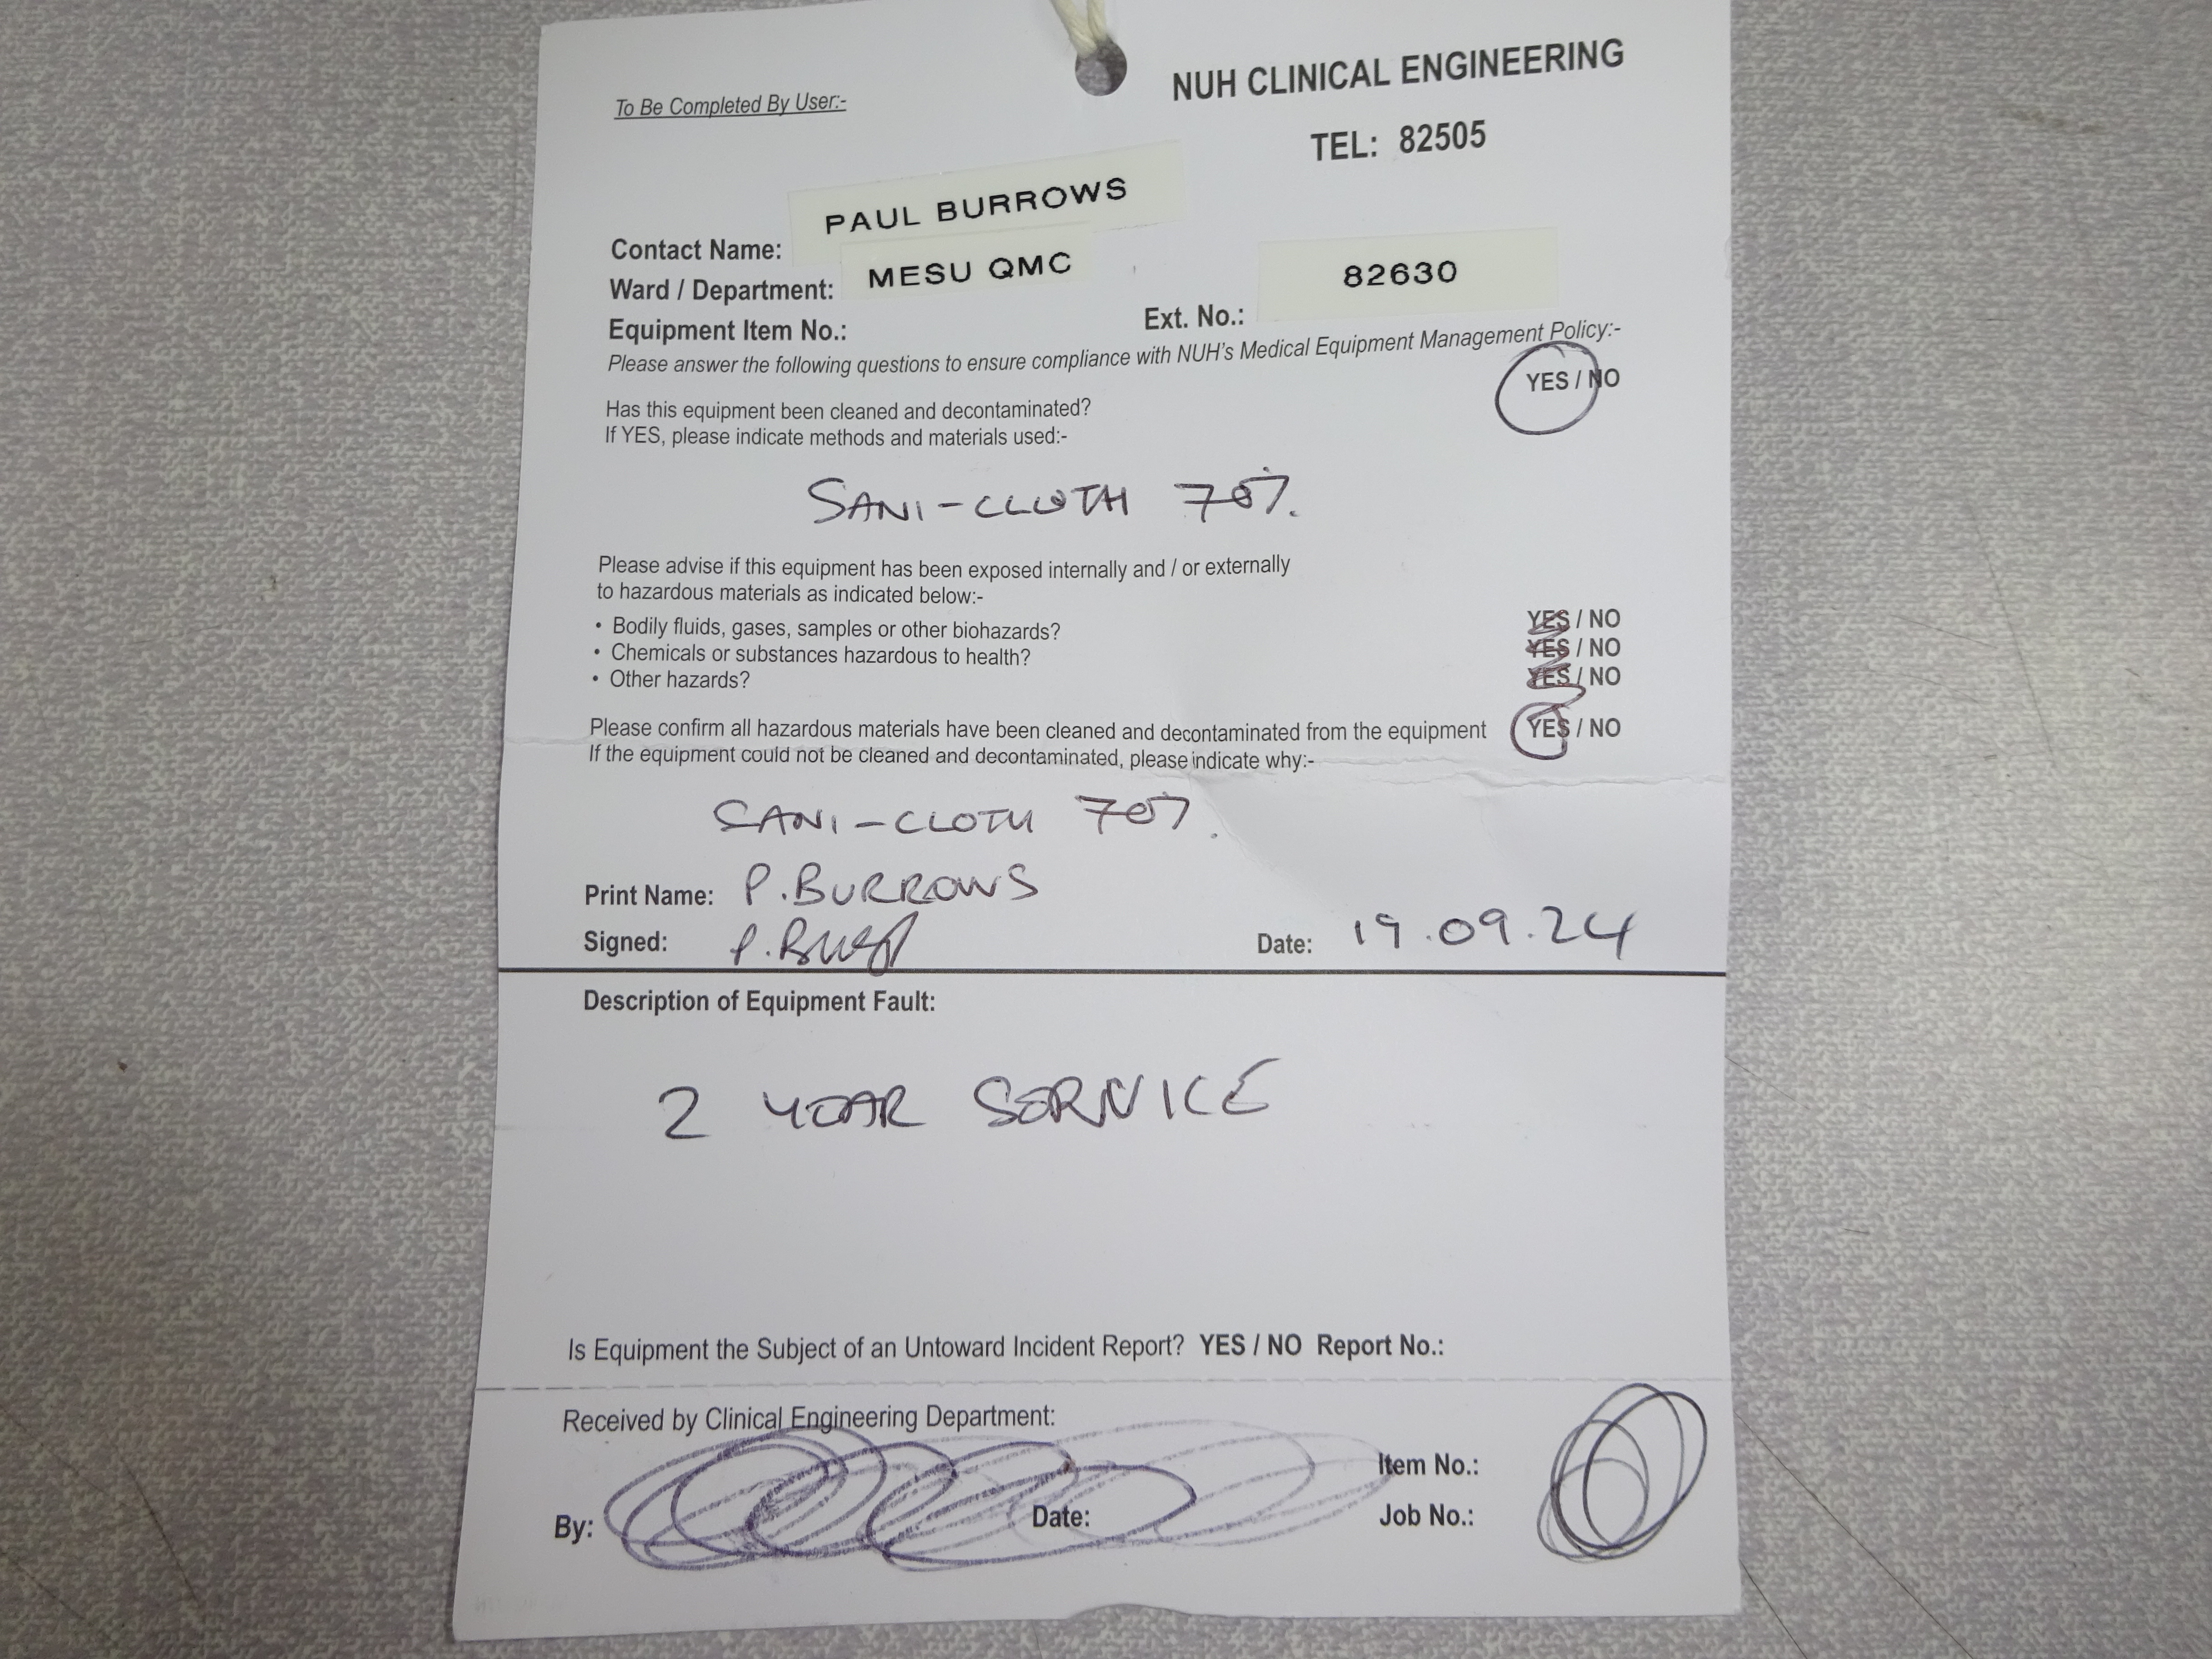 To Be Completed By User:-
NUH CLINICAL ENGINEERING
TEL: 82505
Contact Name: PAUL BURROWS
Ward / Department: MESU QMC
Equipment Item No.:
Ext. No.: 82630
Please answer the following questions to ensure compliance with NUH's Medical Equipment Management Policy:-
Has this equipment been cleaned and decontaminated? YES / NO
If YES, please indicate methods and materials used:-
SANI-CLOTH 70%.
Please advise if this equipment has been exposed internally and / or externally
to hazardous materials as indicated below:-
• Bodily fluids, gases, samples or other biohazards? YES / NO
• Chemicals or substances hazardous to health? YES / NO
• Other hazards? YES / NO
Please confirm all hazardous materials have been cleaned and decontaminated from the equipment YES / NO
If the equipment could not be cleaned and decontaminated, please indicate why:-
SANI-CLOTH 70%.
Print Name: P. BURROWS
Signed: P.
Date: 19.09.24
Description of Equipment Fault:
2 YEAR SERVICE
Is Equipment the Subject of an Untoward Incident Report? YES / NO Report No.:
Received by Clinical Engineering Department:
Item No.:
By: Date: Job No.: